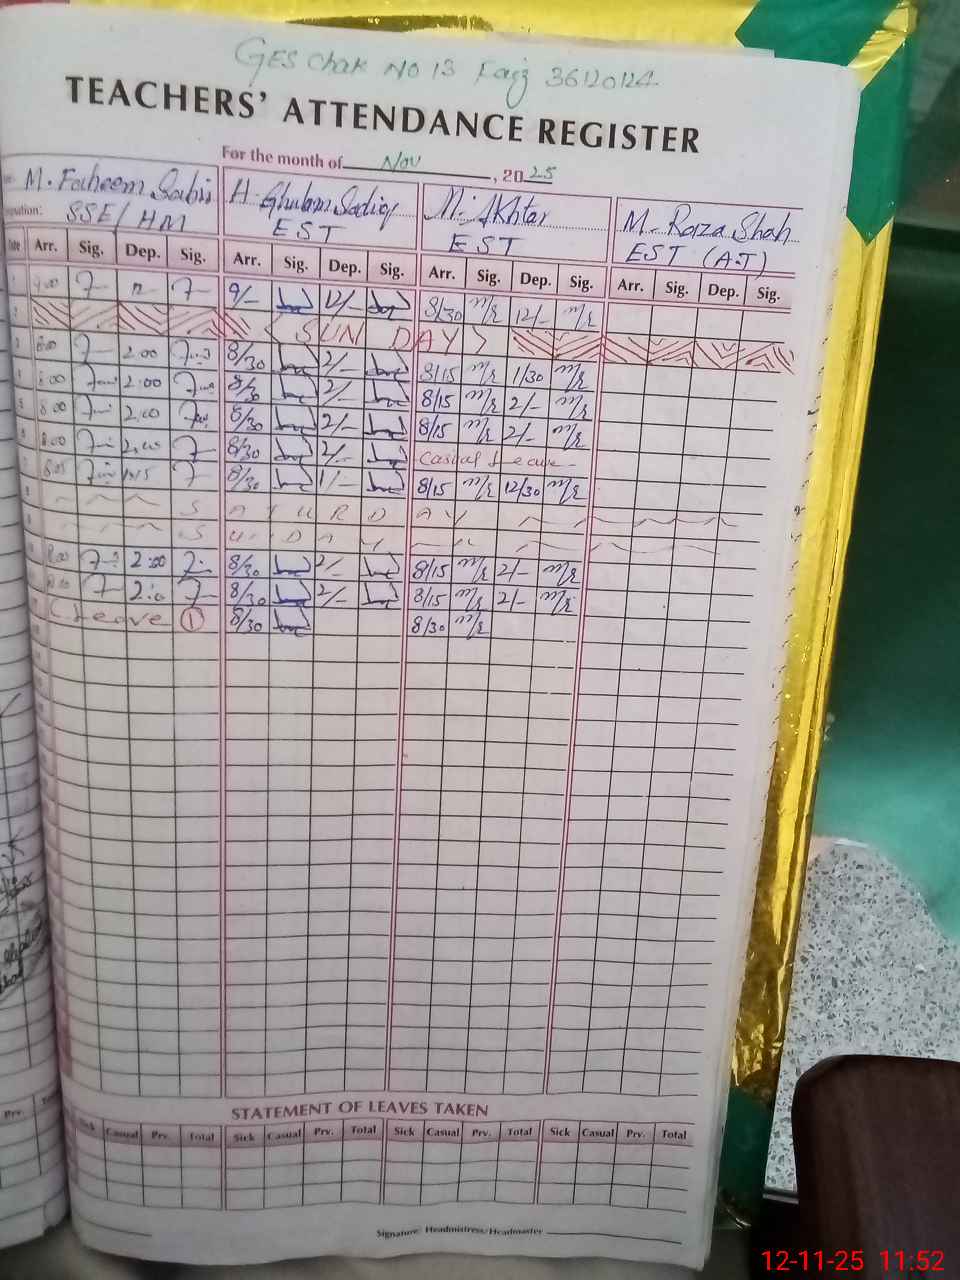 GES Chak No 13 Faiz 36120124
TEACHERS' ATTENDANCE REGISTER
For the month of Nov, 2025
M. Faheem Sabir H. Ghulam Sadiq M. Akhtar M. Raza Shah
SSE/HM EST EST EST (A.T)
Date Arr. Sig. Dep. Sig. Arr. Sig. Dep. Sig. Arr. Sig. Dep. Sig. Arr. Sig. Dep. Sig.
1 9.00 12 9/- 12/- 8/30 12/-
2 < SUN DAY >
3 8.00 2.00 8/30 2/- 8/15 1/30
4 8.00 2.00 8/30 2/- 8/15 2/-
5 8.00 2.00 8/30 2/- 8/15 2/-
6 8.00 2.00 8/30 2/- Casual Leave
7 8.05 8/30 1/- 8/15 12/30
8 SATURDAY
9 SUNDAY
10 8.00 2.00 8/30 2/- 8/15 2/-
8.00 2.0 8/30 2/- 8/15 2/-
C Leave 1 8/30 8/30
STATEMENT OF LEAVES TAKEN
Prv. Sick Casual Prv. Total Sick Casual Prv. Total Sick Casual Prv. Total Sick Casual Prv. Total
Signature: Headmistress/Headmaster
12-11-25 11:52